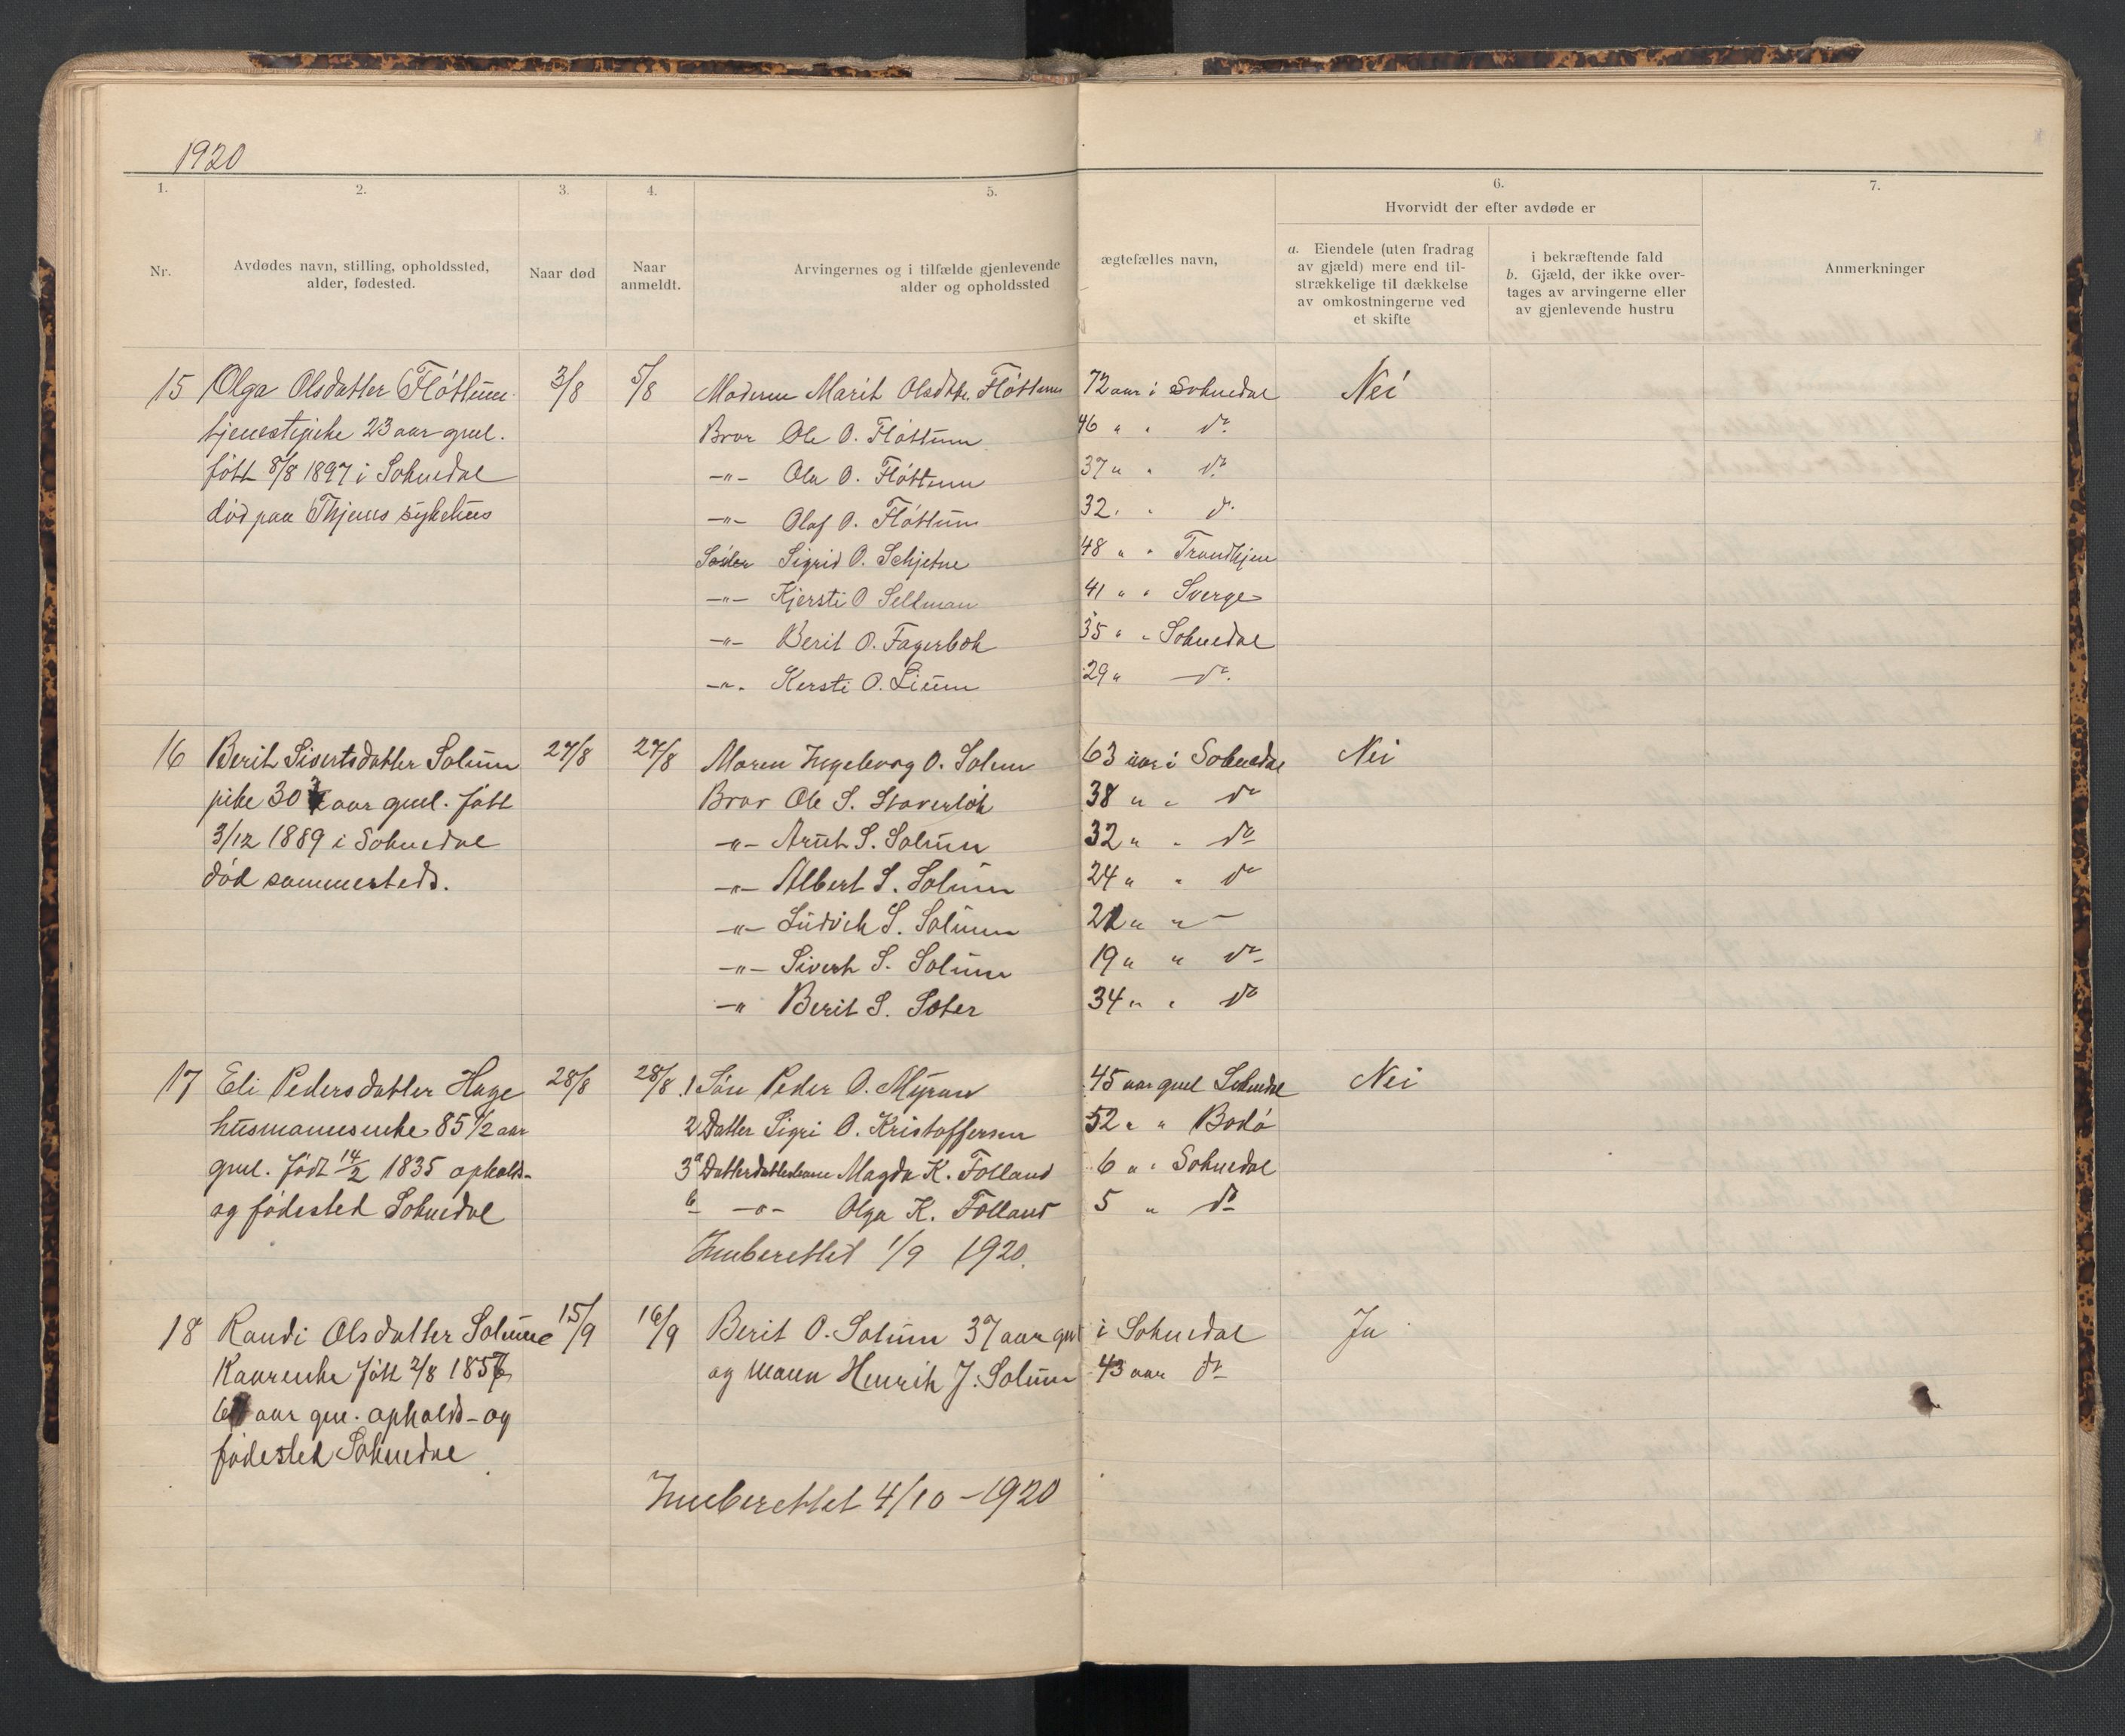 1920
1. 2. 3. 4. 5. 6. 7.
Hvorvidt der efter avdøde er
Nr.
Avdødes navn, stilling, opholdssted,
alder, fødested.
Naar død
Naar
anmeldt.
Arvingernes og i tilfælde gjenlevende ægtefælles navn,
alder og opholdssted
a. Eiendele (uten fradrag
av gjæld) mere end til-
strækkelige til dækkelse
av omkostningerne ved
et skifte
i bekræftende fald
b. Gjæld, der ikke over-
tages av arvingerne eller
av gjenlevende hustru
Anmerkninger
15 Olga Olsdatter Fløttum 3/8 5/8 Moderen Marit Olsdtr. Fløttum 72 aar i Soknedal Nei
tjenestepike 23 aar gml. Bror Ole O. Fløttum 46 " " do
født 8/8 1897 i Soknedal -"- Ola O. Fløttum 37 " " do
død paa Thjems sykehus -"- Olaf O. Fløttum 32 " " do
Søster Sigrid O. Schjetne 48 " " Trondhjem
-"- Kjersti O Sellman 41 " " Sverge
-"- Berit O. Fagerbæk 35 " " Soknedal
-"- Kersti O. Lium 29 " do
16 Berit Sivertsdatter Solum 27/8 27/8 Moren Ingeborg O. Solum 63 aar i Soknedal Nei
pike 30 aar gml. født Bror Ole S. Staverløk 38 " " do
3/12 1889 i Soknedal -"- Arnt S. Solum 32 " " do
død sammesteds. -"- Albert S. Solum 24 " " do
-"- Ludvik S. Solum 21 " " -
-"- Sivert S. Solum 19 " " do
-" Berit S. Soter 34 " " do
17 Eli Pedersdatter Hage 28/8 28/8 1 Søn Peder O. Myran 45 aar gml Soknedal Nei
husmannsenke 85 1/2 aar 2 Datter Sigri O. Kristoffersen 52 " " Bodø
gml. født 14/2 1835 opholds- 3a Datterdatter Magda K. Folland 6 " " Soknedal
og fødested Soknedal b -"- Olga K. Folland 5 " do
Innberettet 1/9 1920.
18 Randi Olsdatter Solum 15/9 16/9 Berit O. Solum 37 aar gml i Soknedal Ja
Kaarenke født 2/8 1857 og mann Henrik J. Solum 43 aar do
aar gml. opholds- og
fødested Soknedal
Innberettet 4/10 - 1920